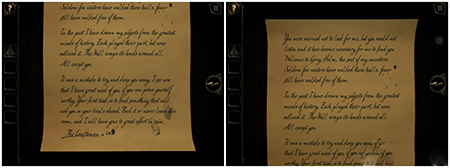 Seldom few visitors have walked these halls, fewer
still have walked free of them.
In the past I have drawn my subjects from the greatest
minds of history. Each played their part, but none
outlived it. The Null weaves its bonds around all.
All except you.
It was a mistake to try and keep you away. I see now
that I have great need of you, if you can prove yourself
worthy. Your first task is to find something that will
aid you in your trials ahead. Find it or never leave this
room, and I will have gone to great effort in vain.
The Craftsman.
You were warned not to look for me, but you would not
listen and it has become necessary for me to find you.
Welcome to Grey Holm, the seat of my ancestors.
Seldom few visitors have walked these halls, fewer
still have walked free of them.
In the past I have drawn my subjects from the greatest
minds of history. Each played their part, but none
outlived it. The Null weaves its bonds around all.
All except you.
It was a mistake to try and keep you away. I see now
that I have great need of you, if you can prove yourself
worthy. Your first task is to find something that will